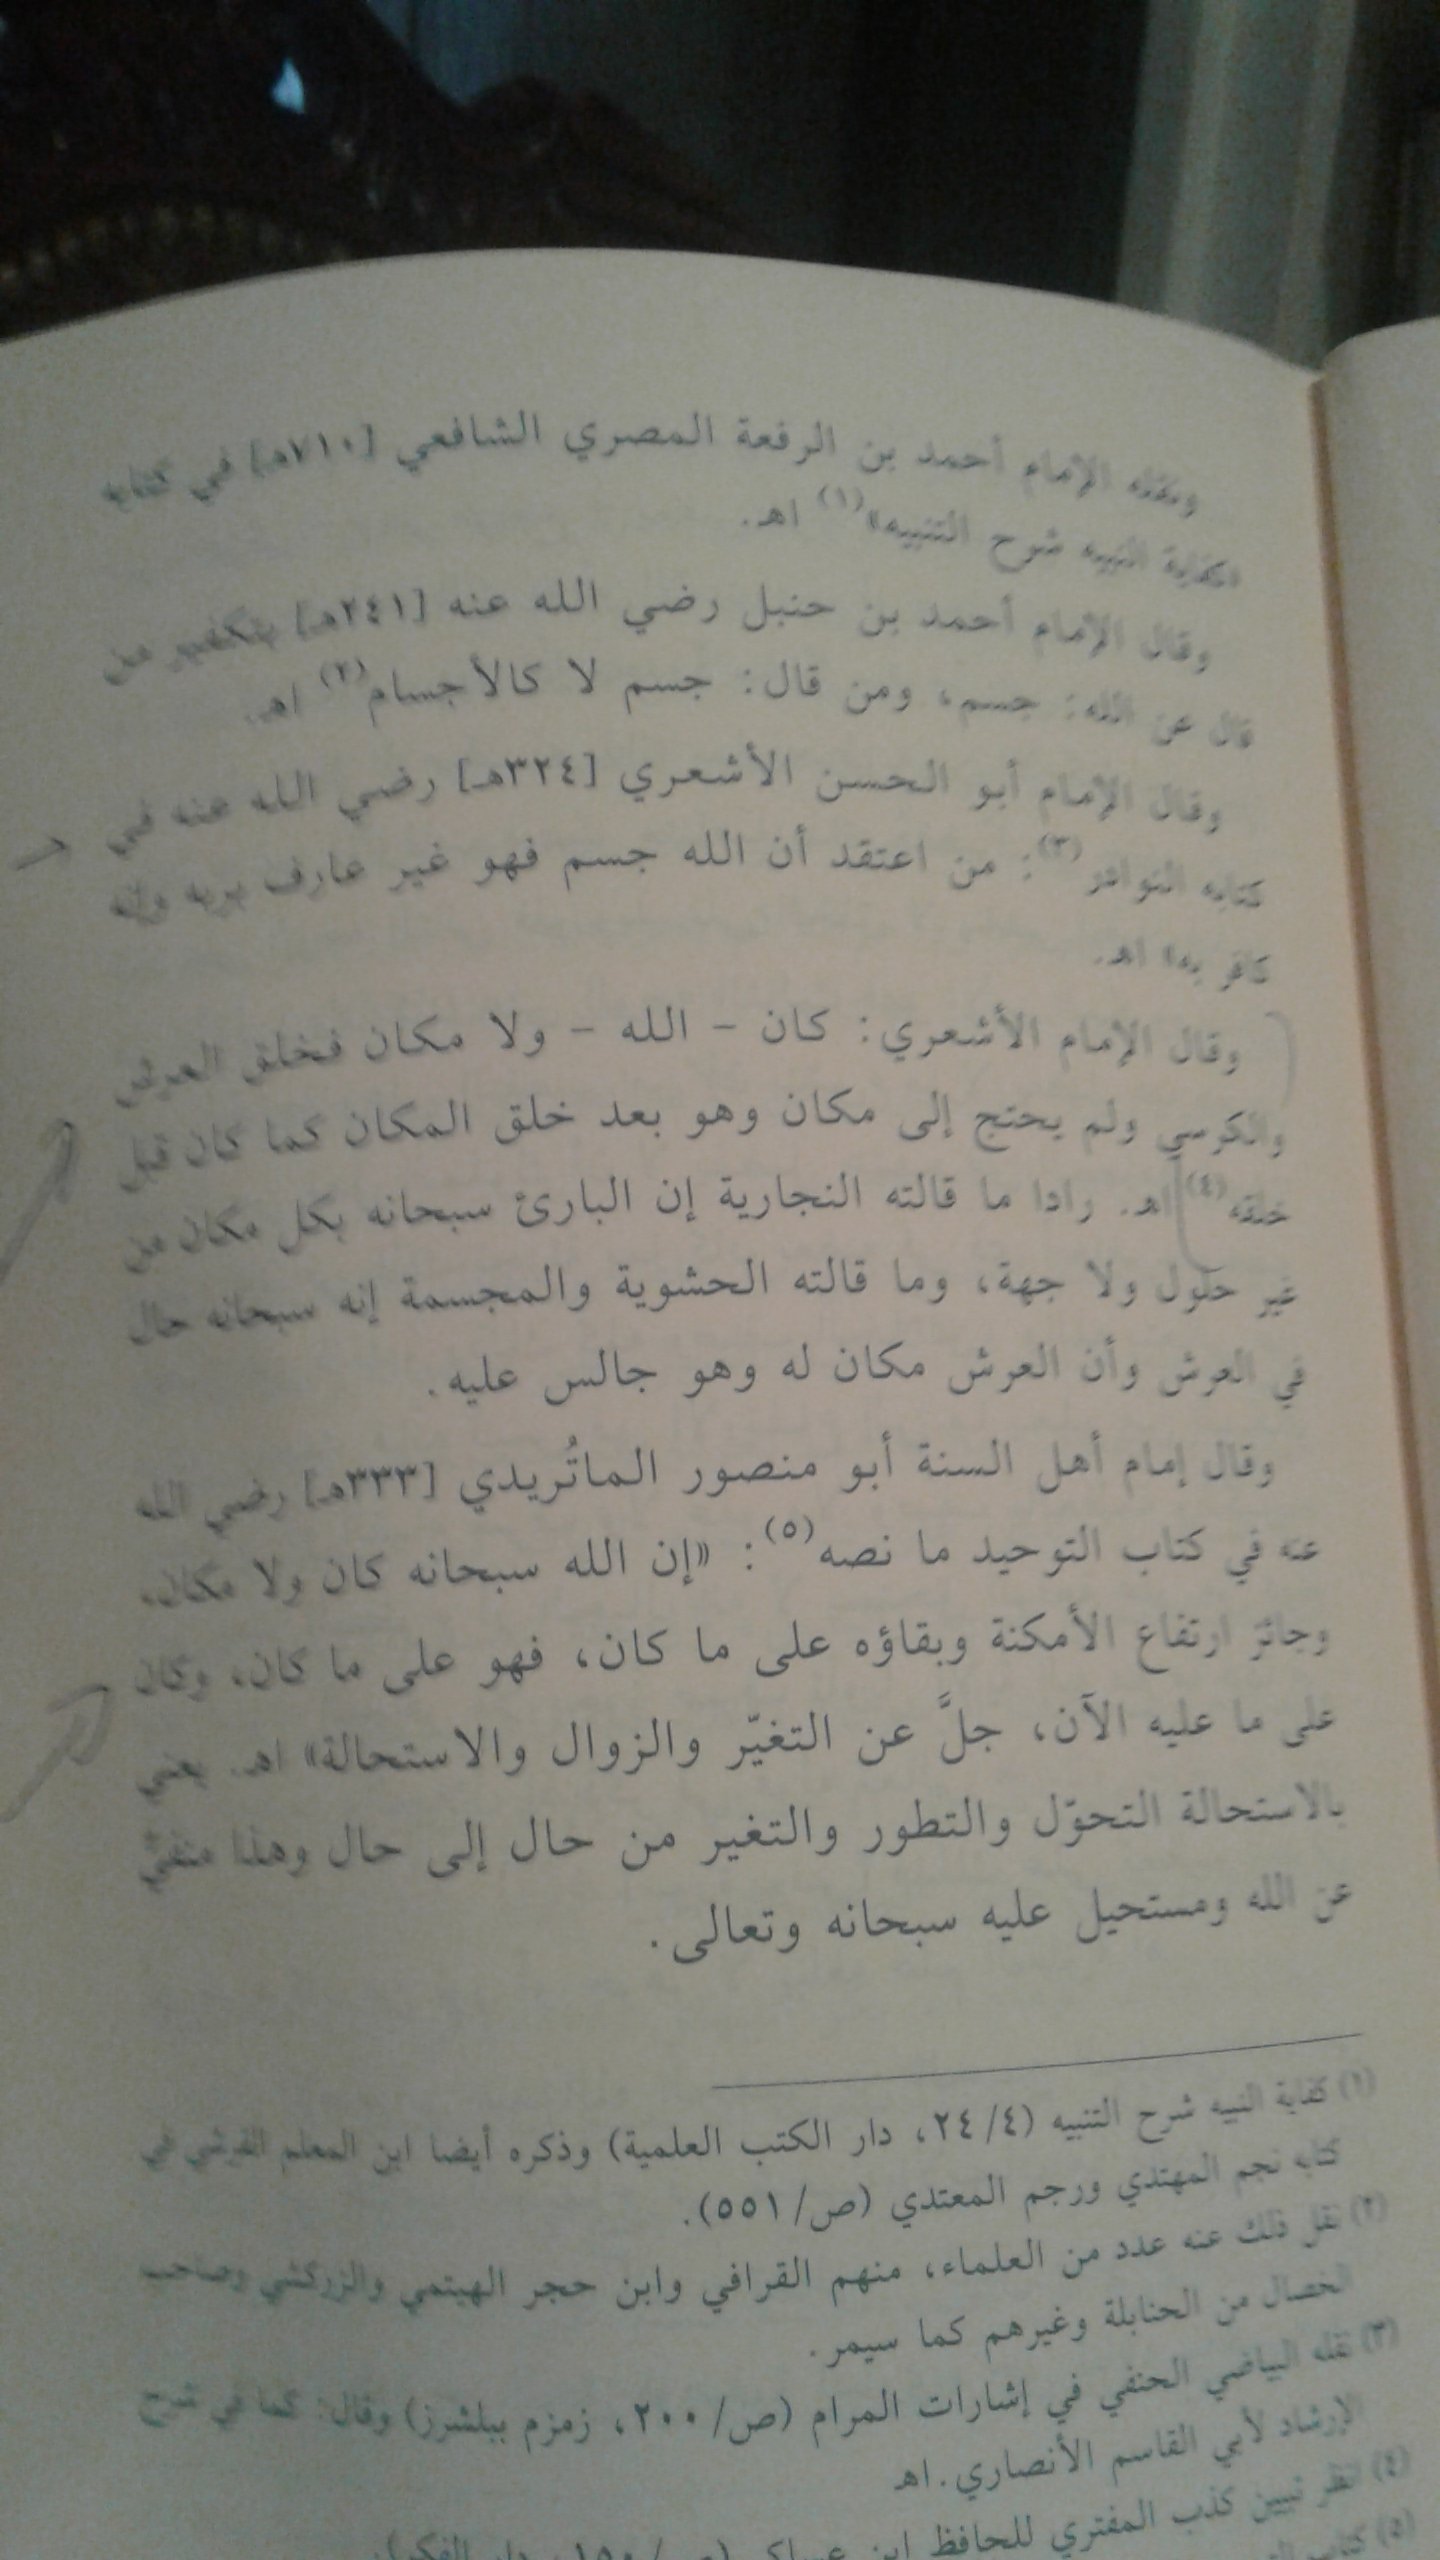 ونقله الإمام أحمد بن الرفعة المصري الشافعي [٧١٠هـ] في كتابه
«كفاية النبيه شرح التنبيه»(١) اهـ.
وقال الإمام أحمد بن حنبل رضي الله عنه [٢٤١هـ] بتكفير من
قال عن الله: جسم، ومن قال: جسم لا كالأجسام(٢) اهـ.
وقال الإمام أبو الحسن الأشعري [٣٢٤هـ] رضي الله عنه في
كتابه النوادر(٣): من اعتقد أن الله جسم فهو غير عارف بربه وإنه
كافر به» اهـ.
وقال الإمام الأشعري: كان - الله - ولا مكان فخلق العرش
والكرسي ولم يحتج إلى مكان وهو بعد خلق المكان كما كان قبل
خلقه(٤) اهـ. رادا ما قالته النجارية إن البارئ سبحانه بكل مكان من
غير حلول ولا جهة، وما قالته الحشوية والمجسمة إنه سبحانه حال
في العرش وأن العرش مكان له وهو جالس عليه.
وقال إمام أهل السنة أبو منصور الماتُريدي [٣٣٣هـ] رضي الله
عنه في كتاب التوحيد ما نصه(٥): «إن الله سبحانه كان ولا مكان،
وجائز ارتفاع الأمكنة وبقاؤه على ما كان، فهو على ما كان، وكان
على ما عليه الآن، جلَّ عن التغيّر والزوال والاستحالة» اهـ. يعني
بالاستحالة التحوّل والتطور والتغير من حال إلى حال وهذا منفيٌّ
عن الله ومستحيل عليه سبحانه وتعالى.
(١) كفاية النبيه شرح التنبيه (٢٤/٤، دار الكتب العلمية) وذكره أيضا ابن المعلم القرشي في
كتابه نجم المهتدي ورجم المعتدي (ص/٥٥١).
(٢) نقل ذلك عنه عدد من العلماء، منهم القرافي وابن حجر الهيتمي والزركشي وصاحب
الخصال من الحنابلة وغيرهم كما سيمر.
(٣) نقله البياضي الحنفي في إشارات المرام (ص/٢٠٠، زمزم ببلشرز) وقال: كما في شرح
الإرشاد لأبي القاسم الأنصاري.اهـ
(٤) انظر تبيين كذب المفتري للحافظ ابن عساكر (ص/١٥٠، دار الفكر).
(٥) كتاب